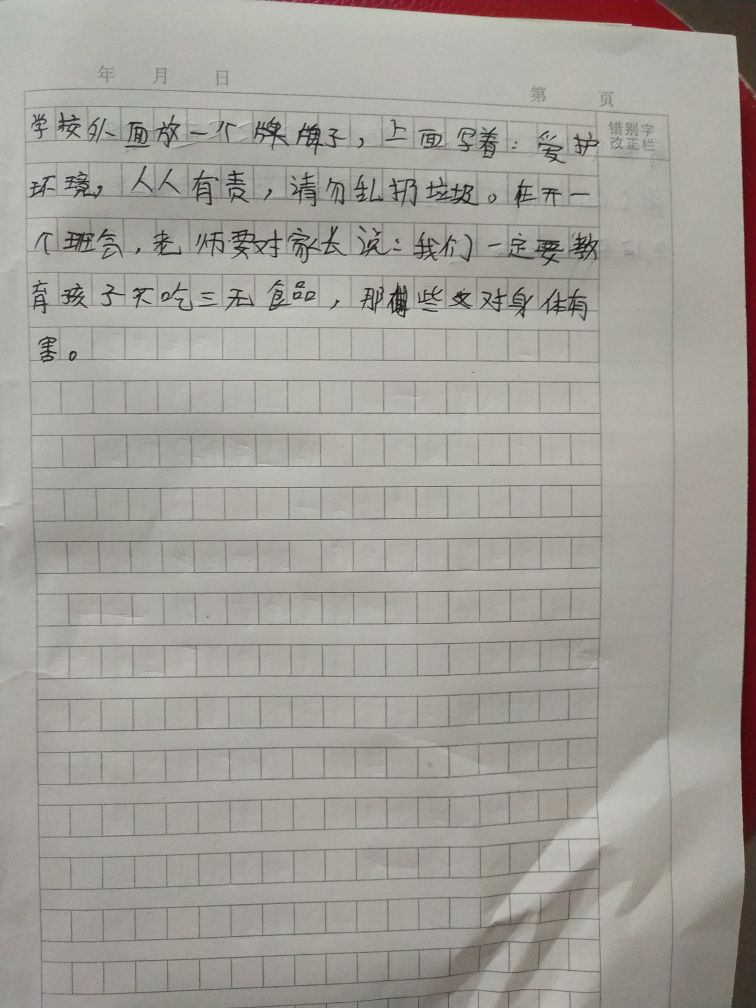 年 月 日
第 页
错别字
改正栏
学校外面放一个牌牌子，上面写着：爱护
环境，人人有责，请勿乱扔垃圾。在开一
个班会，老师要对家长说：我们一定要教
育孩子不吃三无食品，那些对身体有
害。